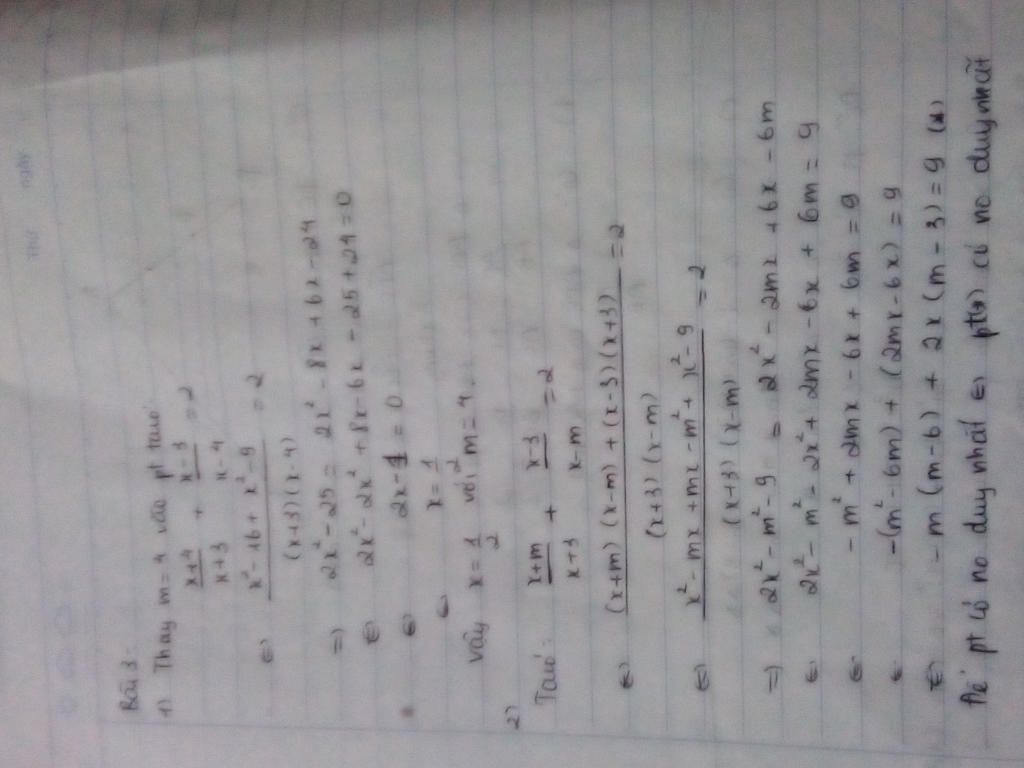 Thứ ngày
Bài 3:
1) Thay m=4 vào pt taco:
x+4/x+3 + x-3/x-4 = 2
⇔ x²-16+x²-9/(x+3)(x-4) = 2
⇒ 2x²-25 = 2x²-8x+6x-24
⇔ 2x²-2x²+8x-6x-25+24=0
⇔ 2x-1=0
⇔ x=1/2
vậy x=1/2 với m=4.
2) Taco: x+m/x+3 + x-3/x-m = 2
⇔ (x+m)(x-m)+(x-3)(x+3)/(x+3)(x-m) = 2
⇔ x²-mx+mx-m²+x²-9/(x+3)(x-m) = 2
⇒ 2x²-m²-9 = 2x²-2mx+6x-6m
⇔ 2x²-m²-2x²+2mx-6x+6m=9
⇔ -m²+2mx-6x+6m=9
⇔ -(m²-6m)+(2mx-6x)=9
⇔ -m(m-6)+2x(m-3)=9 (*)
Để pt có no duy nhất ⇔ pt(*) có no duy nhất